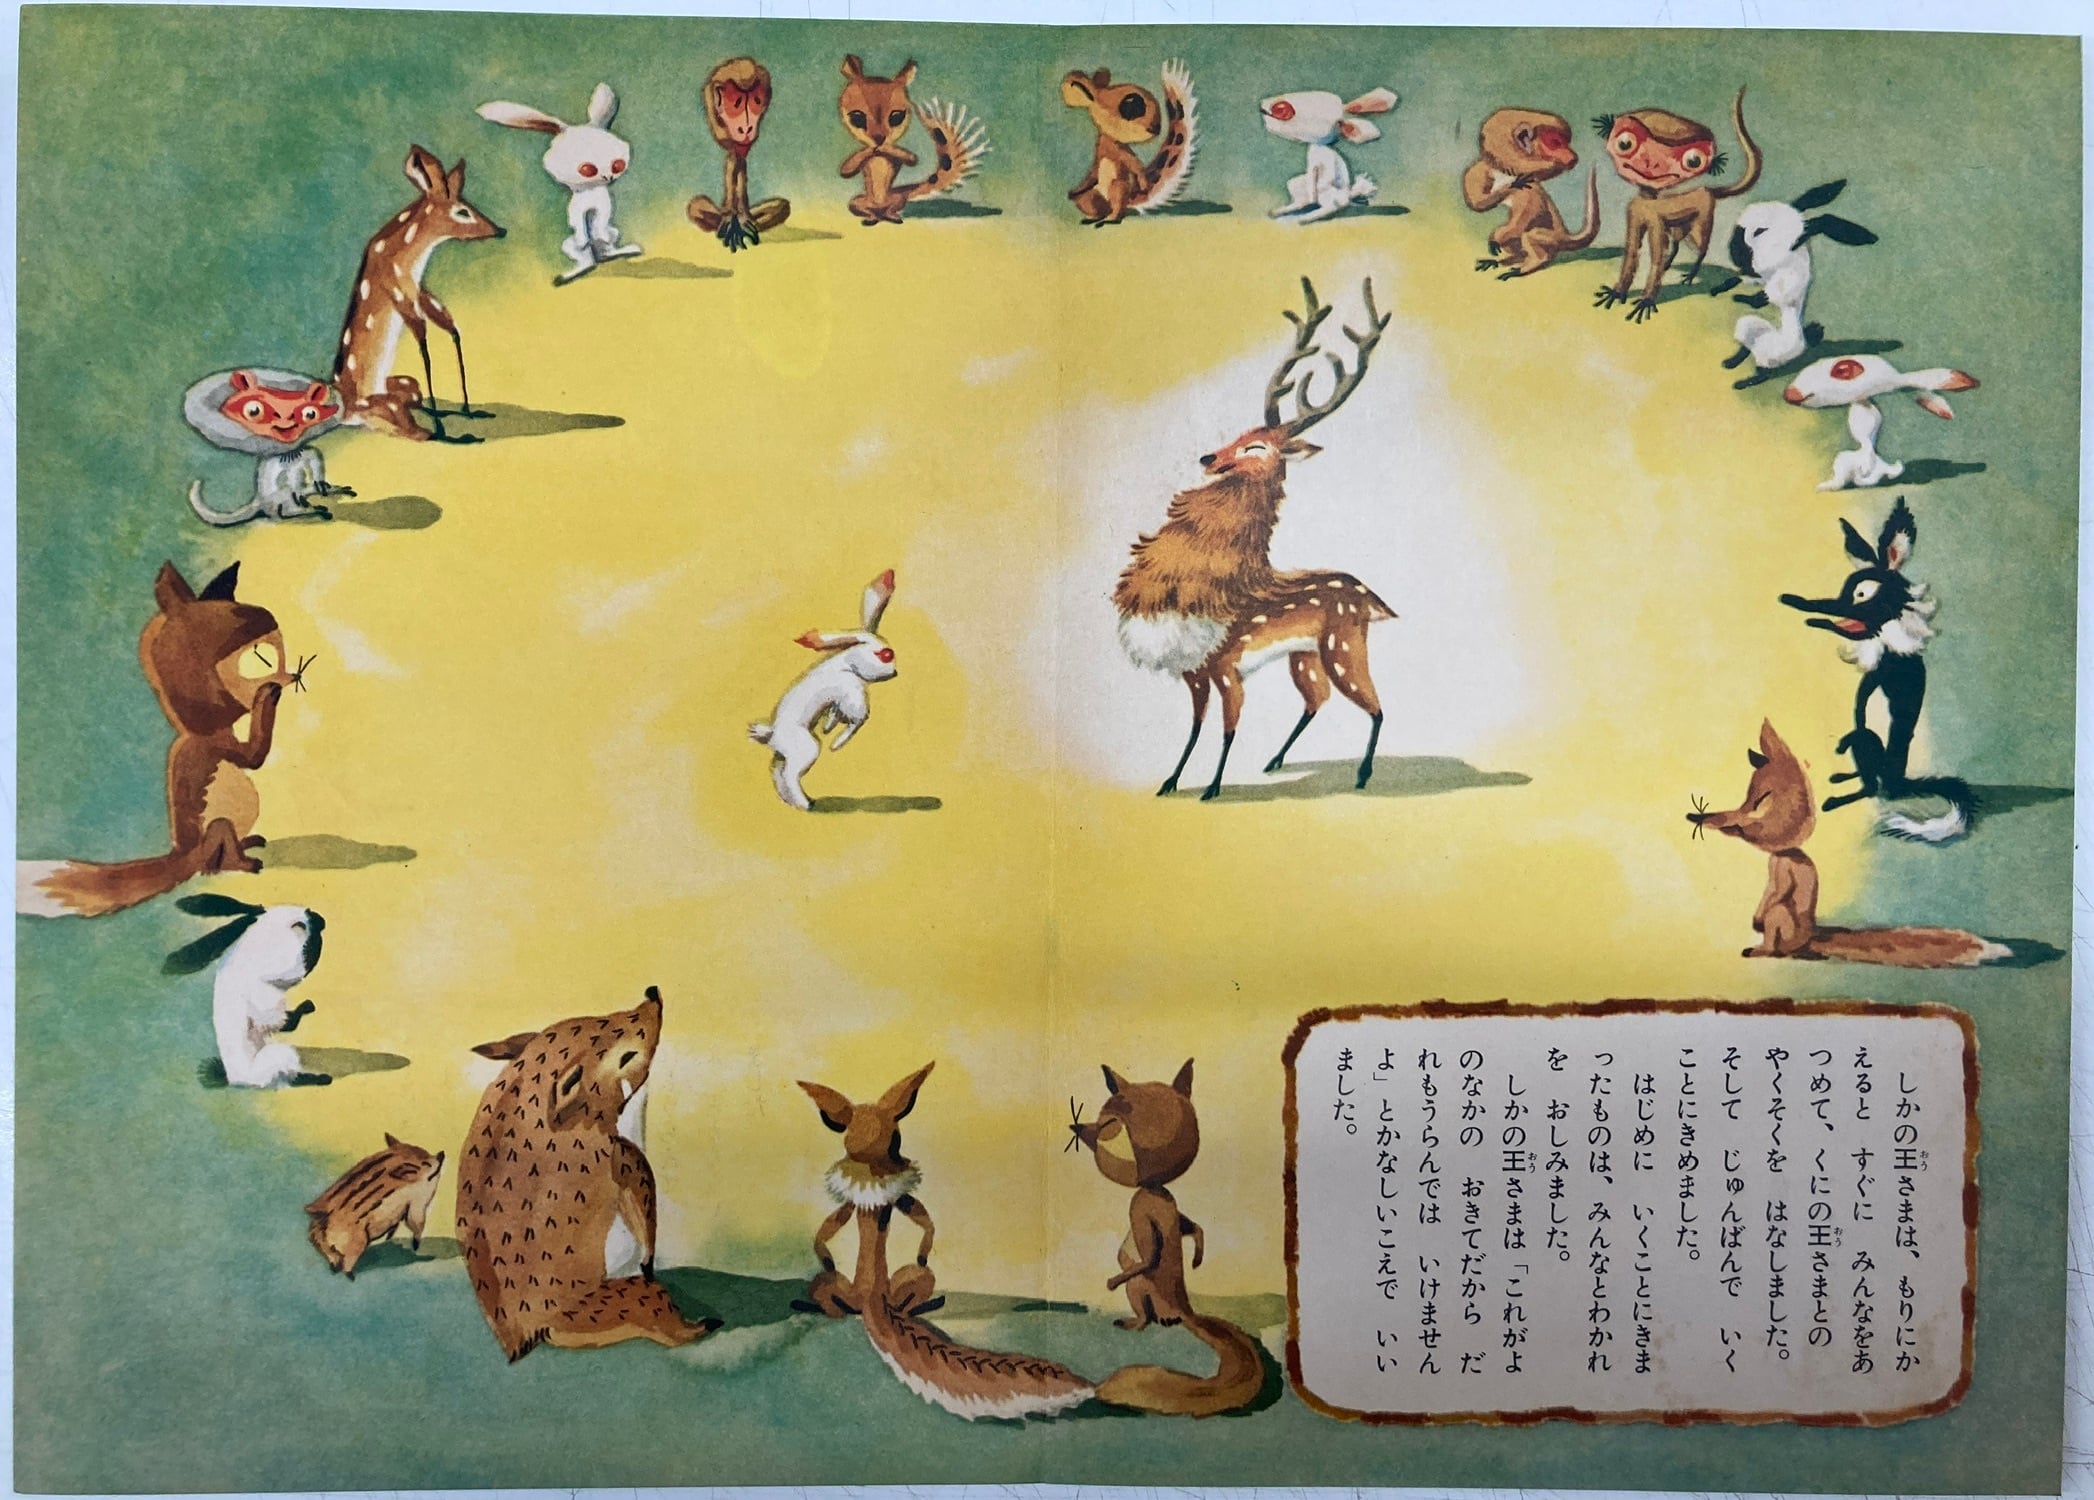 しかの王さまは、もりにか
えると すぐに みんなをあ
つめて、くにの王さまとの
やくそくを はなしました。
そして じゅんばんで いく
ことにきめました。
はじめに いくことにきま
ったものは、みんなとわかれ
を おしみました。
しかの王さまは「これがよ
のなかの おきてだから だ
れもうらんでは いけません
よ」とかなしいこえで いい
ました。